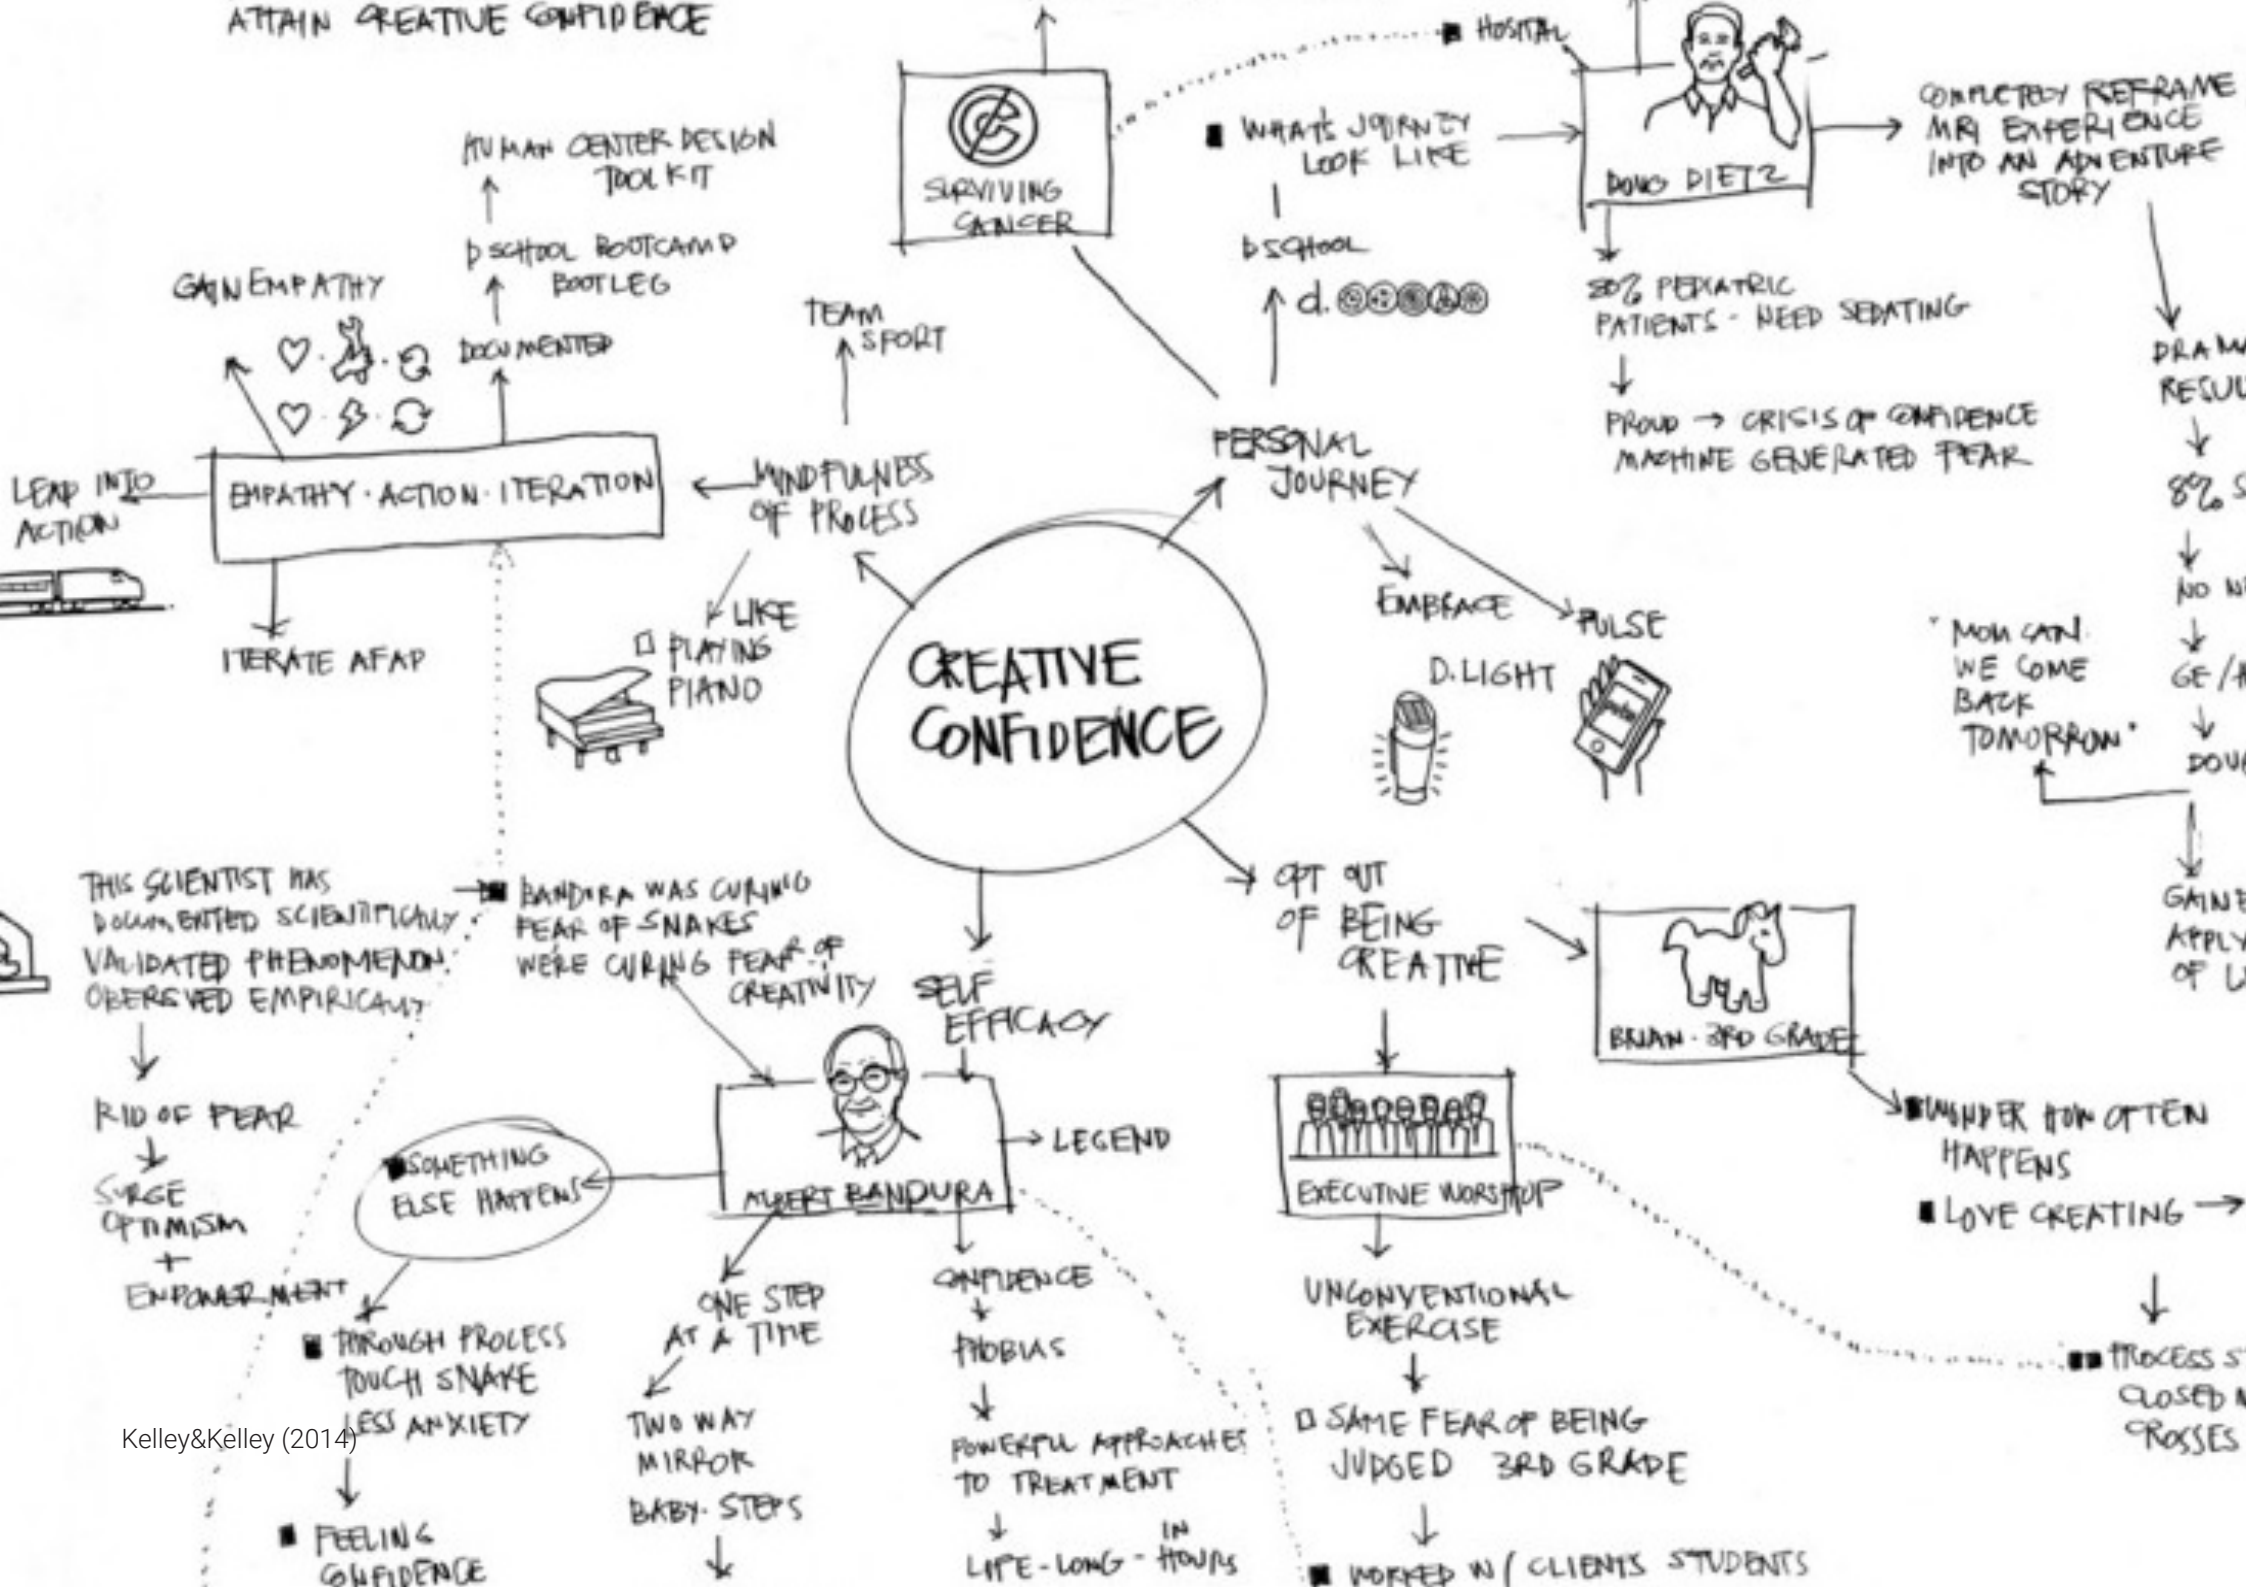 ATTAIN CREATIVE CONFIDENCE
HUMAN CENTER DESIGN
TOOLKIT
D SCHOOL BOOTCAMP
BOOTLEG
DOCUMENTED
GAIN EMPATHY
LEAP INTO
ACTION
EMPATHY · ACTION · ITERATION
ITERATE AFAP
TEAM
SPORT
MINDFULNESS
OF PROCESS
LIKE
PLAYING
PIANO
SURVIVING
CANCER
HOSITAL
WHAT'S JOURNEY
LOOK LIKE
DSCHOOL
d.
PERSONAL
JOURNEY
DOUG DIETZ
COMPLETELY REFRAME
MRI EXPERIENCE
INTO AN ADVENTURE
STORY
80% PEDIATRIC
PATIENTS - NEED SEDATING
PROUD → CRISIS OF CONFIDENCE
MACHINE GENERATED FEAR
EMBRACE
PULSE
D.LIGHT
"MOM CAN
WE COME
BACK
TOMORROW"
RESUL
8% S
NO
GE/
DOUG
GAINE
APPLY
OF L
CREATIVE
CONFIDENCE
THIS SCIENTIST HAS
DOCUMENTED SCIENTIFICALLY
VALIDATED PHENOMENON.
OBERSVED EMPIRICALLY
RID OF FEAR
SURGE
OPTIMISM
+
EMPOWERMENT
BANDURA WAS CURING
FEAR OF SNAKES
WE'RE CURING FEAR OF
CREATIVITY
SELF
EFFICACY
ALBERT BANDURA
LEGEND
SOMETHING
ELSE HAPPENS
THROUGH PROCESS
TOUCH SNAKE
LESS ANXIETY
Kelley&Kelley (2014)
FEELING
CONFIDENCE
ONE STEP
AT A TIME
TWO WAY
MIRROR
BABY-STEPS
CONFIDENCE
PHOBIAS
POWERFUL APPROACHES
TO TREATMENT
LIFE-LONG - IN HOURS
OPT OUT
OF BEING
CREATIVE
BRIAN · 3RD GRADE
WONDER HOW OFTEN
HAPPENS
LOVE CREATING
EXECUTIVE WORSHOP
UNCONVENTIONAL
EXERCISE
SAME FEAR OF BEING
JUDGED 3RD GRADE
WORKED W/ CLIENTS STUDENTS
PROCESS S
CLOSED
CROSSES